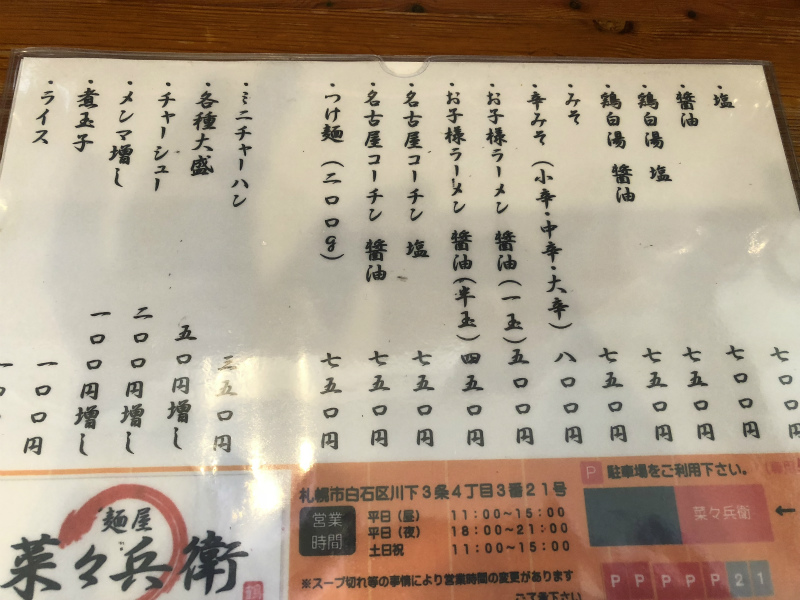 ・塩 七〇〇円
・醤油 七〇〇円
・鶏白湯 塩 七五〇円
・鶏白湯 醤油 七五〇円
・みそ 七五〇円
・辛みそ(小辛・中辛・大辛) 八〇〇円
・お子様ラーメン 醤油(一玉) 五〇〇円
・お子様ラーメン 醤油(半玉) 四五〇円
・名古屋コーチン 塩 七五〇円
・名古屋コーチン 醤油 七五〇円
・つけ麺(二〇〇g) 七五〇円
・ミニチャーハン 三五〇円
・各種大盛 五〇円増し
・チャーシュー 二〇〇円増し
・メンマ増し 一〇〇円増し
・煮玉子 一〇〇円
・ライス
麺屋
菜々兵衛
札幌市白石区川下3条4丁目3番21号
営業時間
平日(昼) 11:00~15:00
平日(夜) 18:00~21:00
土日祝 11:00~15:00
※スープ切れ等の事情により営業時間の変更があります
ご了承下さい
P 駐車場をご利用下さい。
菜々兵衛
←
P P P P P 2 1